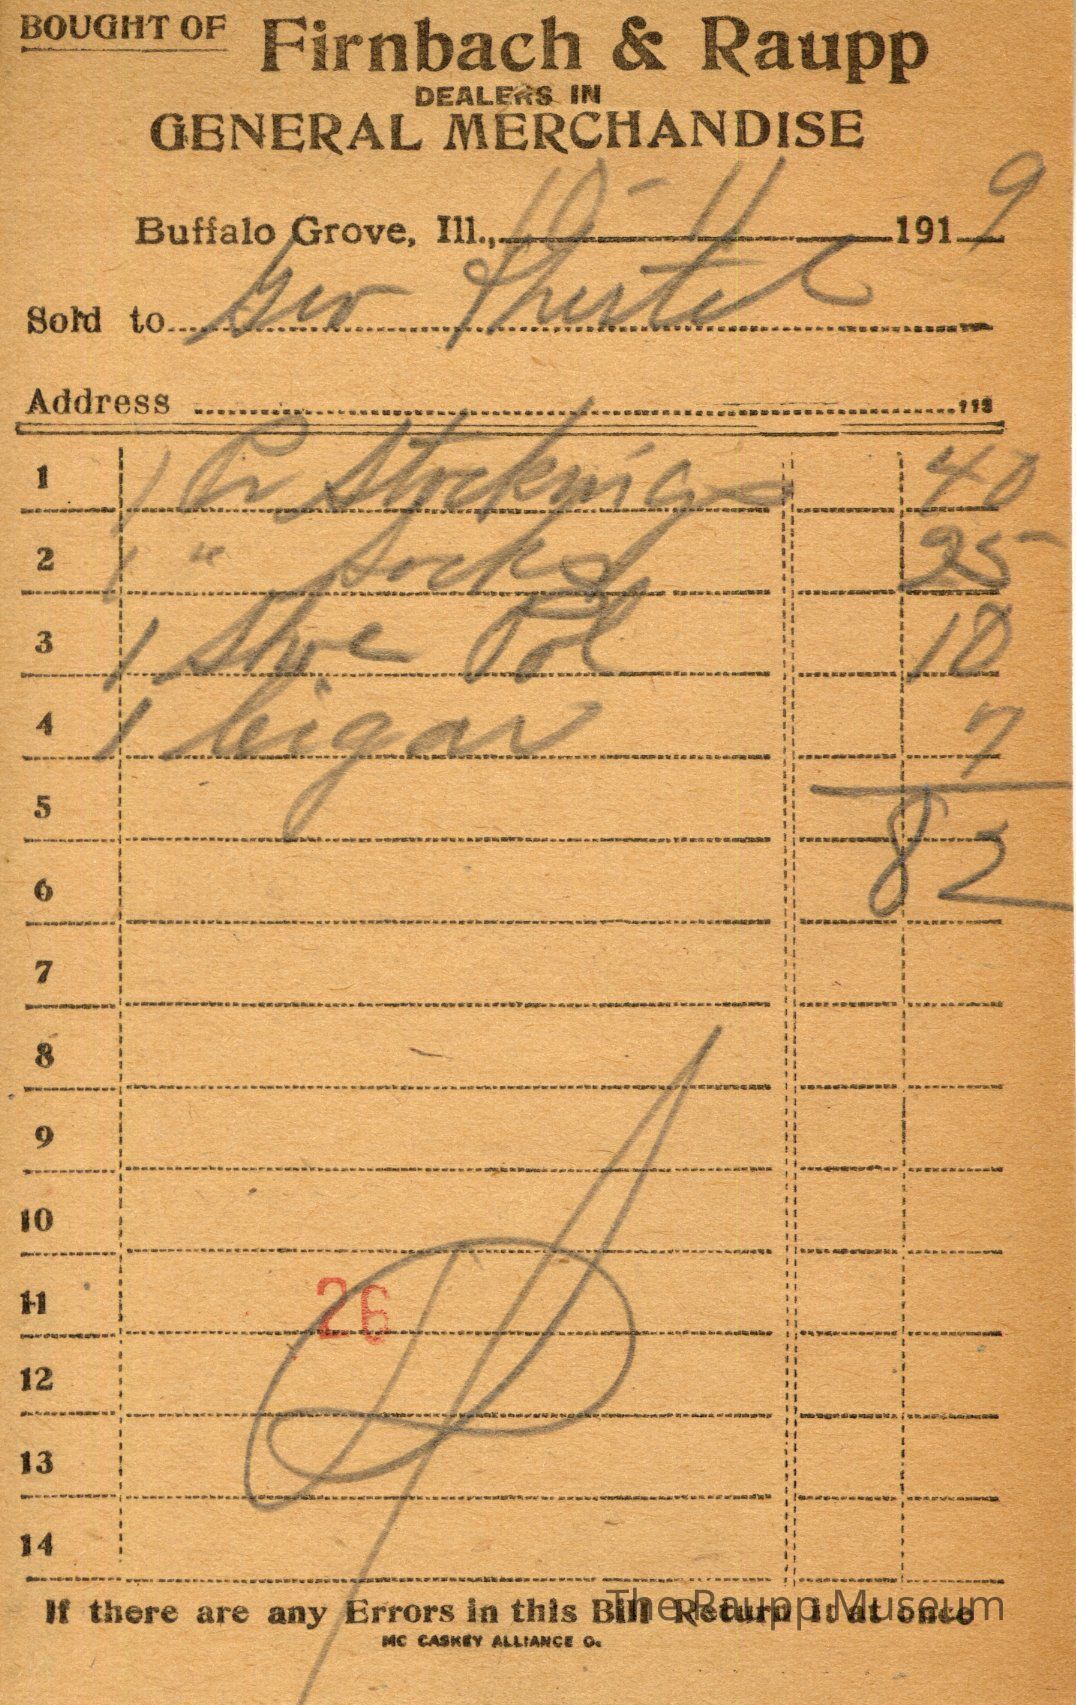 BOUGHT OF Firnbach & Raupp
DEALERS IN
GENERAL MERCHANDISE
Buffalo Grove, Ill., 10-11 1919
Sold to Geo
Address
1 1 Pr Stockings 40
2 1 " Socks 25
3 1 Shoe Pol 10
4 1 Cigar 7
5 82
6
7
8
9
10
11 26
12
13
14
If there are any Errors in this Bill Return it at once
The Raupp Museum
MC CASKEY ALLIANCE O.